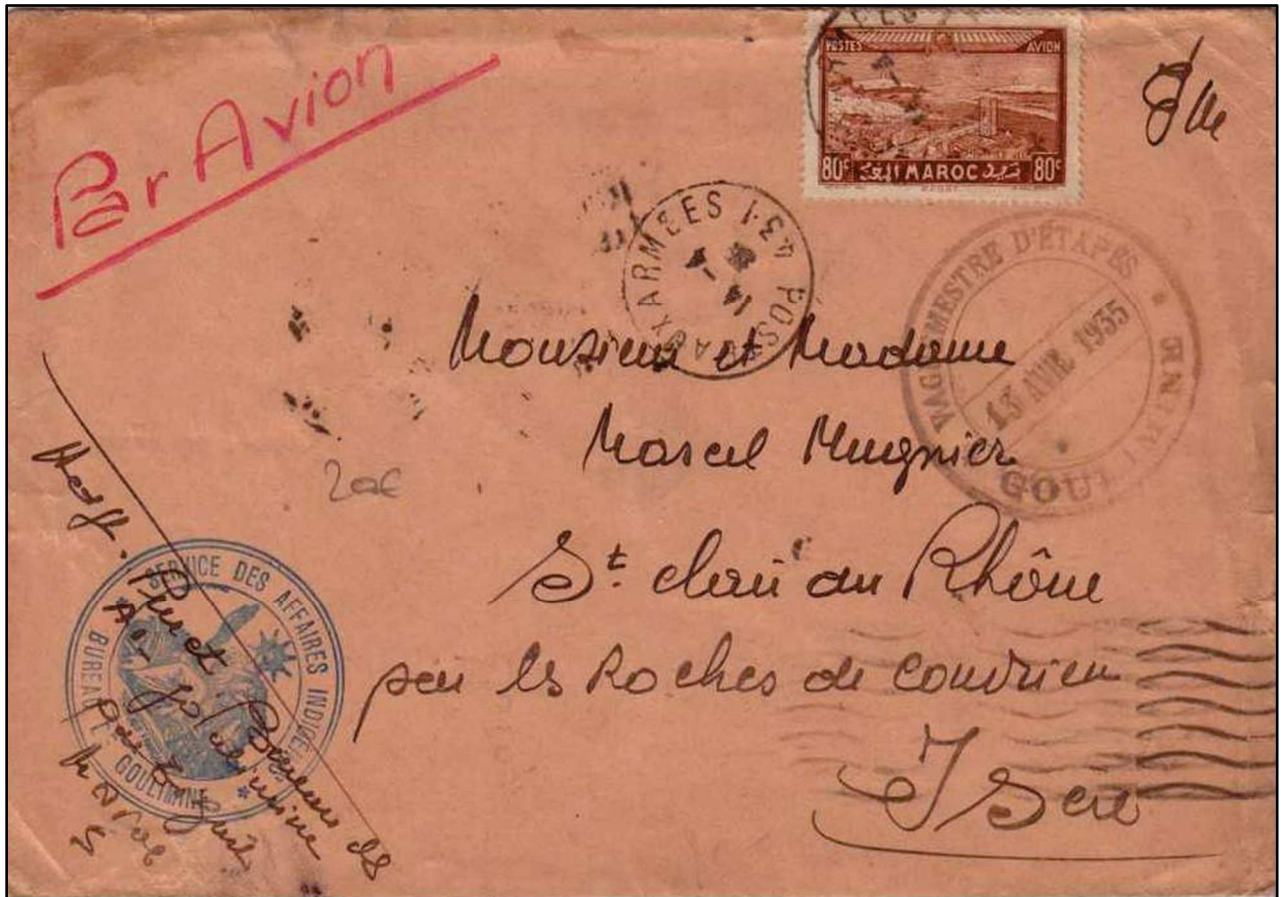 Par Avion
POSTES AVION
80c MAROC 80c
POSTE AUX ARMEES 431
14 - 4
VAGUEMESTRE D'ÉTAPES *
13 AVR 1935
GOULIMINE
Monsieur et Madame
Marcel Mugnier
St. clair du Rhône
par les Roches de Condrieu
Isere
20€
SERVICE DES AFFAIRES INDIGENES
BUREAU GOULIMINE
Bureau des